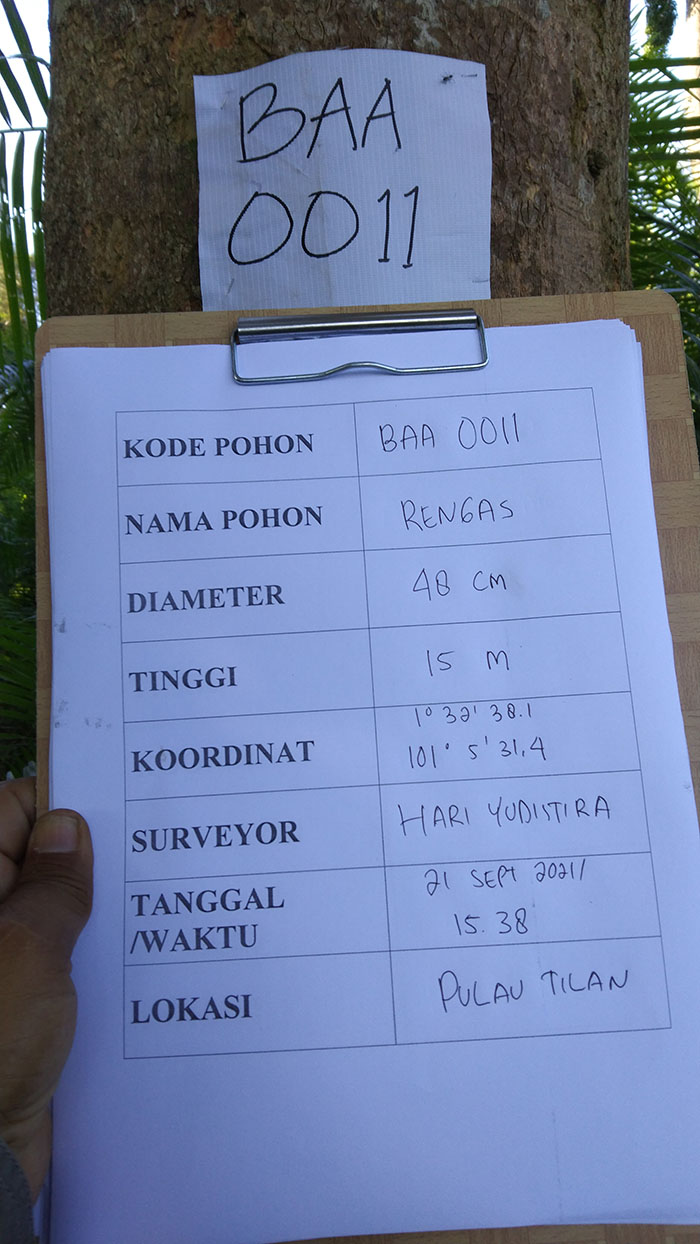 BAA
0011
KODE POHON BAA 0011
NAMA POHON RENGAS
DIAMETER 48 CM
TINGGI 15 M
KOORDINAT 1° 32' 38.1
101° 5' 31,4
SURVEYOR HARI YUDISTIRA
TANGGAL 21 SEPT 2021/
/WAKTU 15.38
LOKASI PULAU TILAN